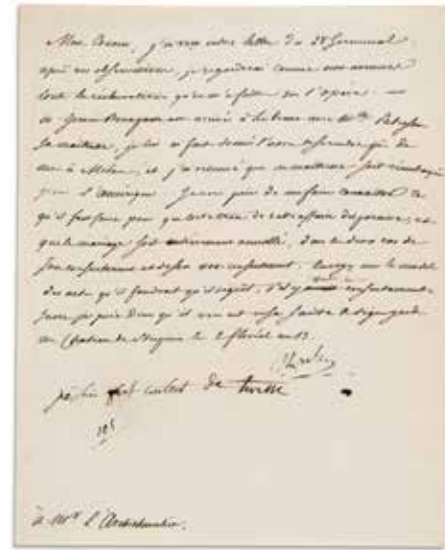 Mon Cousin, j'ai reçu votre lettre du 28 Germinal.
après vos observations, je regarderai comme non avenue
toute la réclamation qu'on a faite sur l'opéra.
Jérôme Bonaparte est arrivé à Lisbonne avec Mlle Paterson
sa maîtresse, je lui ai fait donner l'ordre de se rendre près de
moi à Milan, et j'ai ordonné que sa maîtresse soit
pour l'Amérique. Je vous prie de me faire connaître ce
qu'il faut faire pour que la trace de cette affaire disparaisse, et
que le mariage soit entièrement annullé, dans le double cas de
son consentement et de son non consentement. Envoyez moi le modèle
des actes qu'il faudrait qu'il signât, s'il y consentement
Sur ce je prie Dieu qu'il vous ait en sa sainte et digne garde
de Stupinis le 2 floréal an 13.
je suis fort content de
à Mr l'Archichancelier.